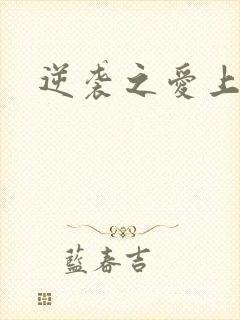 逆袭之愛上
藍春吉